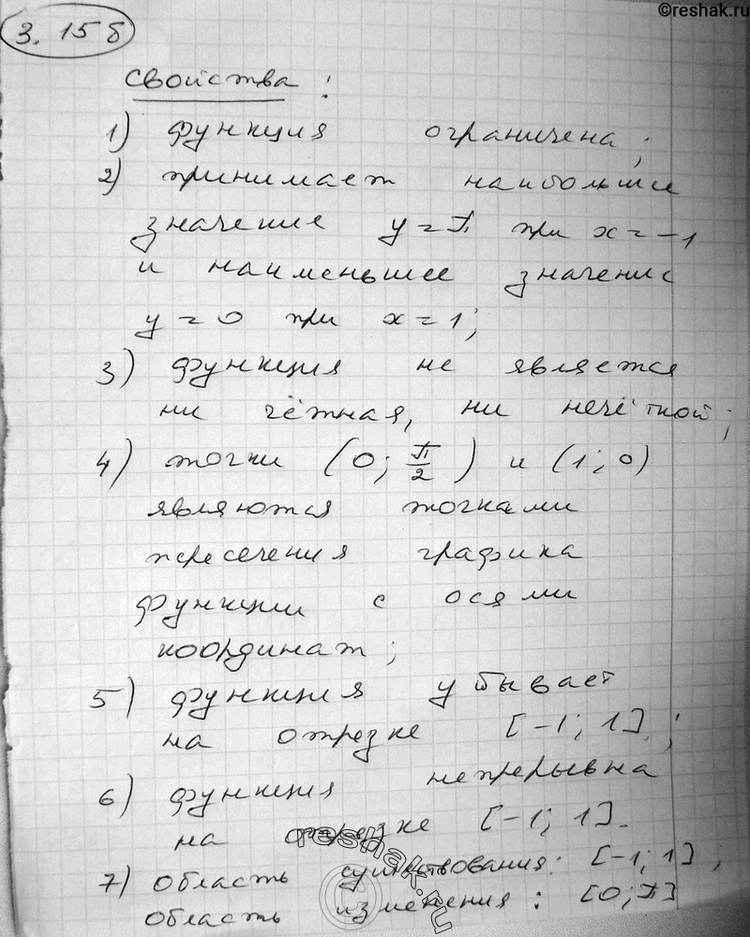 ©reshak.ru
3.15б
свойства:
1) функция ограничена;
2) принимает наибольшее
значение y=π при x=-1
и наименьшее значение
y=0 при x=1;
3) функция не является
ни чётная, ни нечётной;
4) точки (0; π/2) и (1; 0)
являются точками
пересечения графика
функции с осями
координат;
5) функция убывает
на отрезке [-1; 1];
6) функция непрерывна
на отрезке [-1; 1].
7) область существования: [-1; 1],
область изменения: [0; π]
reshak.ru